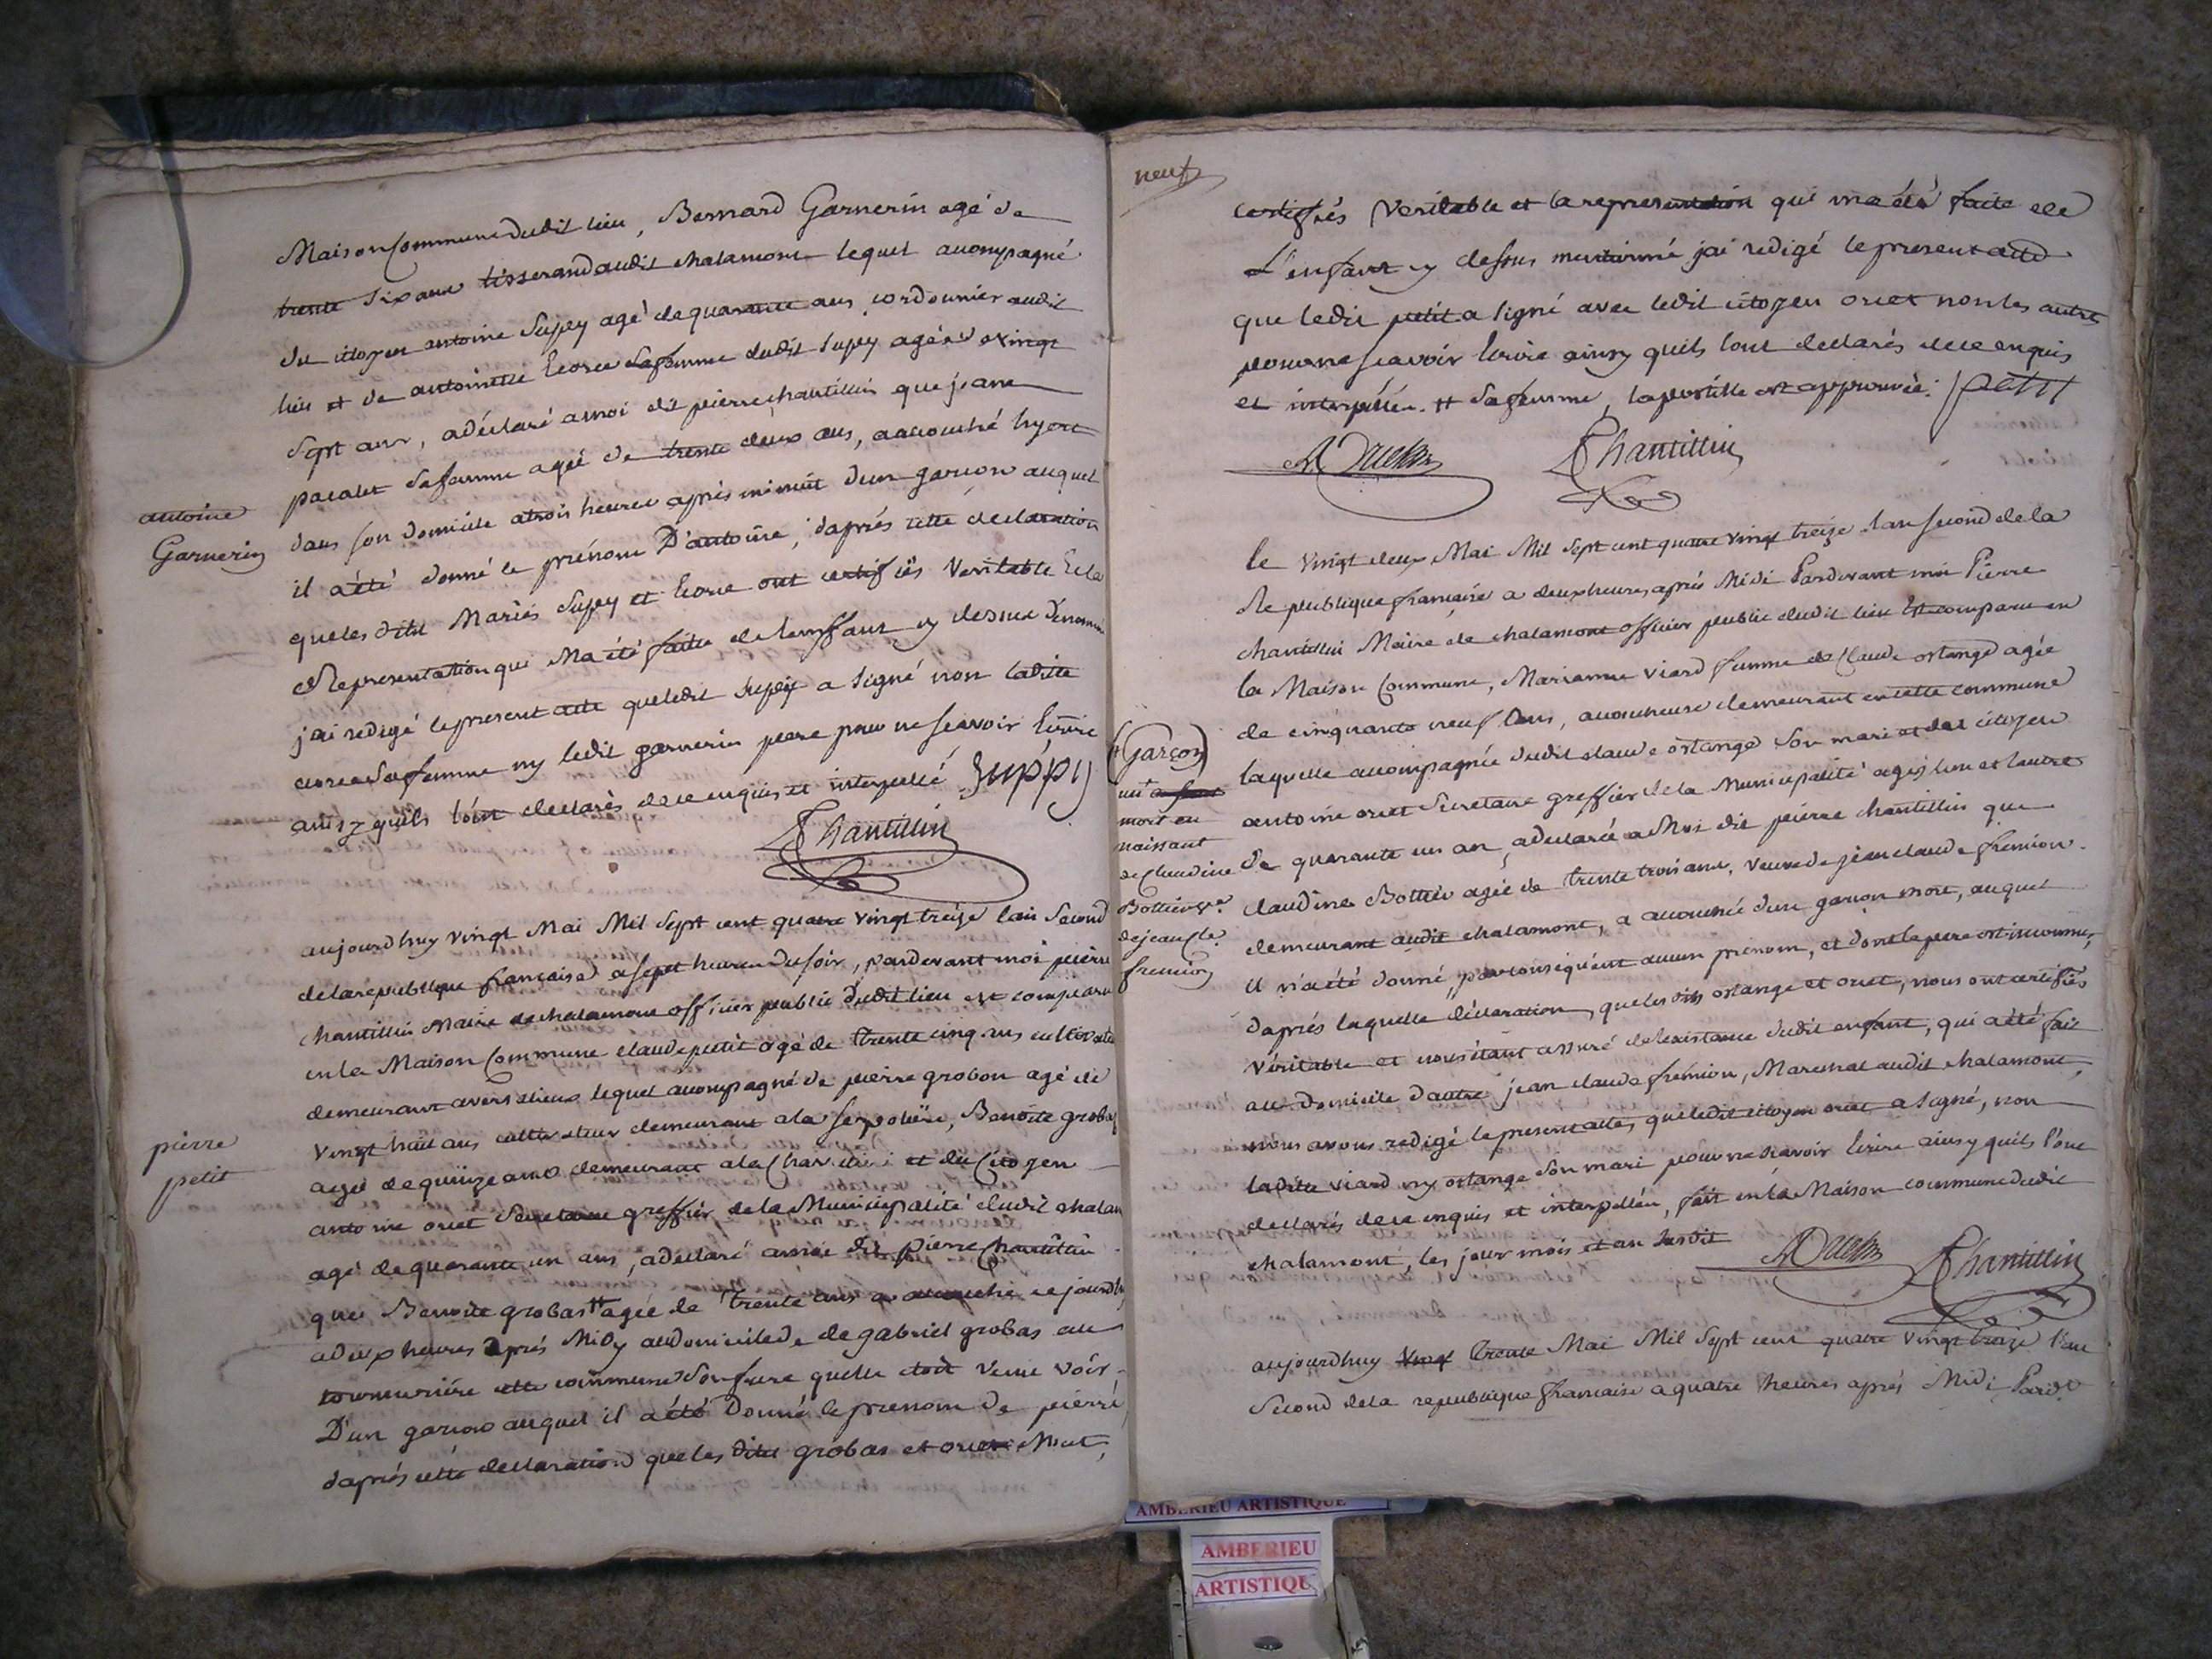 Maison Commune dudit lieu, Bernard Garnerin agé de
trente six ans tisserand audit chalamont lequel accompagné
du citoyen antoine Supey agé de quarante ans, cordonnier audit
lieu et de antoinette sa femme dudit Supey agée de vingt
Sept ans, a déclaré a moi dit pierre chantillin que jeane
pacalet sa femme agée de trente deux ans, accouché hyert
antoine
Garnerin
dans son domicile a trois heures après minuit d'un garcon auquel
il a été donné le prénom D'antoine, d'aprés cette declaration
que les dits Mariés Supey et ont certifiés Veritable Et la
Representation qui Ma été faitte de l'enfant cy dessus dénommé
j'ai redigé le present acte que ledit Supey a signé non ladite
sa femme ny ledit garnerin pere pour ne scavoir Ecrire
ainsy quils l'ont declarés de ce enquis et interpellé Suppy
Chantillin
aujourdhuy vingt Mai Mil Sept cent quatre vingt treize l'an Second
de la republique francaise a sept heures du soir, pardevant moi pierre
chantillin Maire de chalamont officier public dudit lieu est comparu
en la Maison Commune claude petit agé de trente cinq ans cultivateur
demeurant a lequel accompagné de pierre grobon agé de
pierre
petit
vingt huit ans cultivateur demeurant a la serpoliere, Benoite grobas
agée de quinze ans demeurant a la et du Citoyen
antoine oriet Secretaire greffier de la Municipalité dudit chalam
agé de quarante un ans, a déclaré a moi dit pierre chantillin
que Benoite grobas # agée de trente ans a accouché ce jourdhuy
a deux heures aprés Midy au domicile de de gabriel grobas au
cette commune son frere quelle etoit venue voir
D'un garcon auquel il a été Donné le prenom de pierre,
d'aprés cette declaration que les dits grobas et oriet M'ont,
neuf
certifiés Veritable et la representation qui m'a été faite de
L'enfant cy dessus mentionné j'ai redigé le present acte
que ledit petit a signé avec ledit citoyen oriet non les autres
pour ne scavoir Ecrire ainsy quils l'ont declarés de ce enquis
et interpellés. # sa femme, l'apostille est approuvée. petit
Chantillin
le vingt deux Mai Mil Sept cent quatre vingt treize l'an second de la
Republique francaise a deux heures aprés Midi Pardevant moi Pierre
chantillin Maire de chalamont officier public dudit lieu Est comparue en
la Maison Commune, Marianne Viard femme de Claude ostange agée
de cinquante neuf ans, accoucheuse demeurant en cette commune
laquelle accompagnée dudit claude ostange son mari et du citoyen
antoine oriet Secretaire greffier de la Municipalité agés l'un et l'autre
de quarante un an, a declarée a Moi dit pierre chantillin que
(Garçon)
un enfant
mort en
naissant
de Claudine
Bottier ve.
de jean cle.
fremion
claudine Bottier agée de trente trois ans, veuve de jean claude fremion
demeurant audit chalamont, a accouchée d'un garcon mort, auquel
il n'a été donné, par conséquent aucun prénom, et dont le pere est inconnu,
d'aprés laquelle déclaration, que les dits ostange et oriet, nous ont certifiés
Véritable et nous étant assuré de l'existance dudit enfant, qui a été fait
au domicile d'autre jean claude fremion, Marechal audit chalamont,
nous avons redigé le present acte, que ledit citoyen oriet a signé, non
ladite viard ny ostange son mari pour ne scavoir Ecrire ainsy quils l'ont
declarés de ce enquis et interpellés, fait en la Maison commune dudit
chalamont, les jour mois et an susdit
Chantillin
aujourdhuy vingt trente Mai Mil Sept cent quatre vingt treize l'an
Second de la republique francaise a quatre heures aprés Midi Pard
AMBERIEU ARTISTIQUE
AMBERIEU
ARTISTIQU